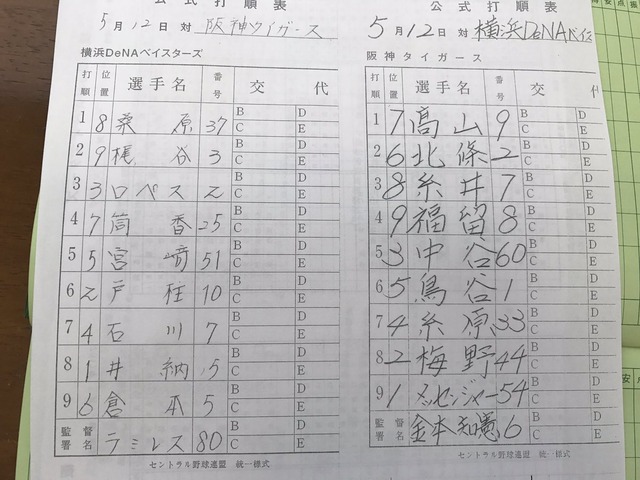 公式打順表
5月12日 対 阪神タイガース
横浜DeNAベイスターズ
打順 位置 選手名 番号 交代
1 8 桑原 37 B D C E
2 9 梶谷 3 B D C E
3 3 ロペス 2 B D C E
4 7 筒香 25 B D C E
5 5 宮﨑 51 B D C E
6 2 戸柱 10 B D C E
7 4 石川 7 B D C E
8 1 井納 15 B D C E
9 6 倉本 5 B D C E
監督署名 ラミレス 80 B D C E
セントラル野球連盟 統一様式
公式打順表
5月12日 対 横浜DeNAベイス
阪神タイガース
打順 位置 選手名 番号 交代
1 7 髙山 9 B D C E
2 6 北條 2 B D C E
3 8 糸井 7 B D C E
4 9 福留 8 B D C E
5 3 中谷 60 B D C E
6 5 鳥谷 1 B D C E
7 4 糸原 33 B D C E
8 2 梅野 44 B D C E
9 1 メッセンジャー 54 B D C E
監督署名 金本知憲 6 B D C E
セントラル野球連盟 統一様式